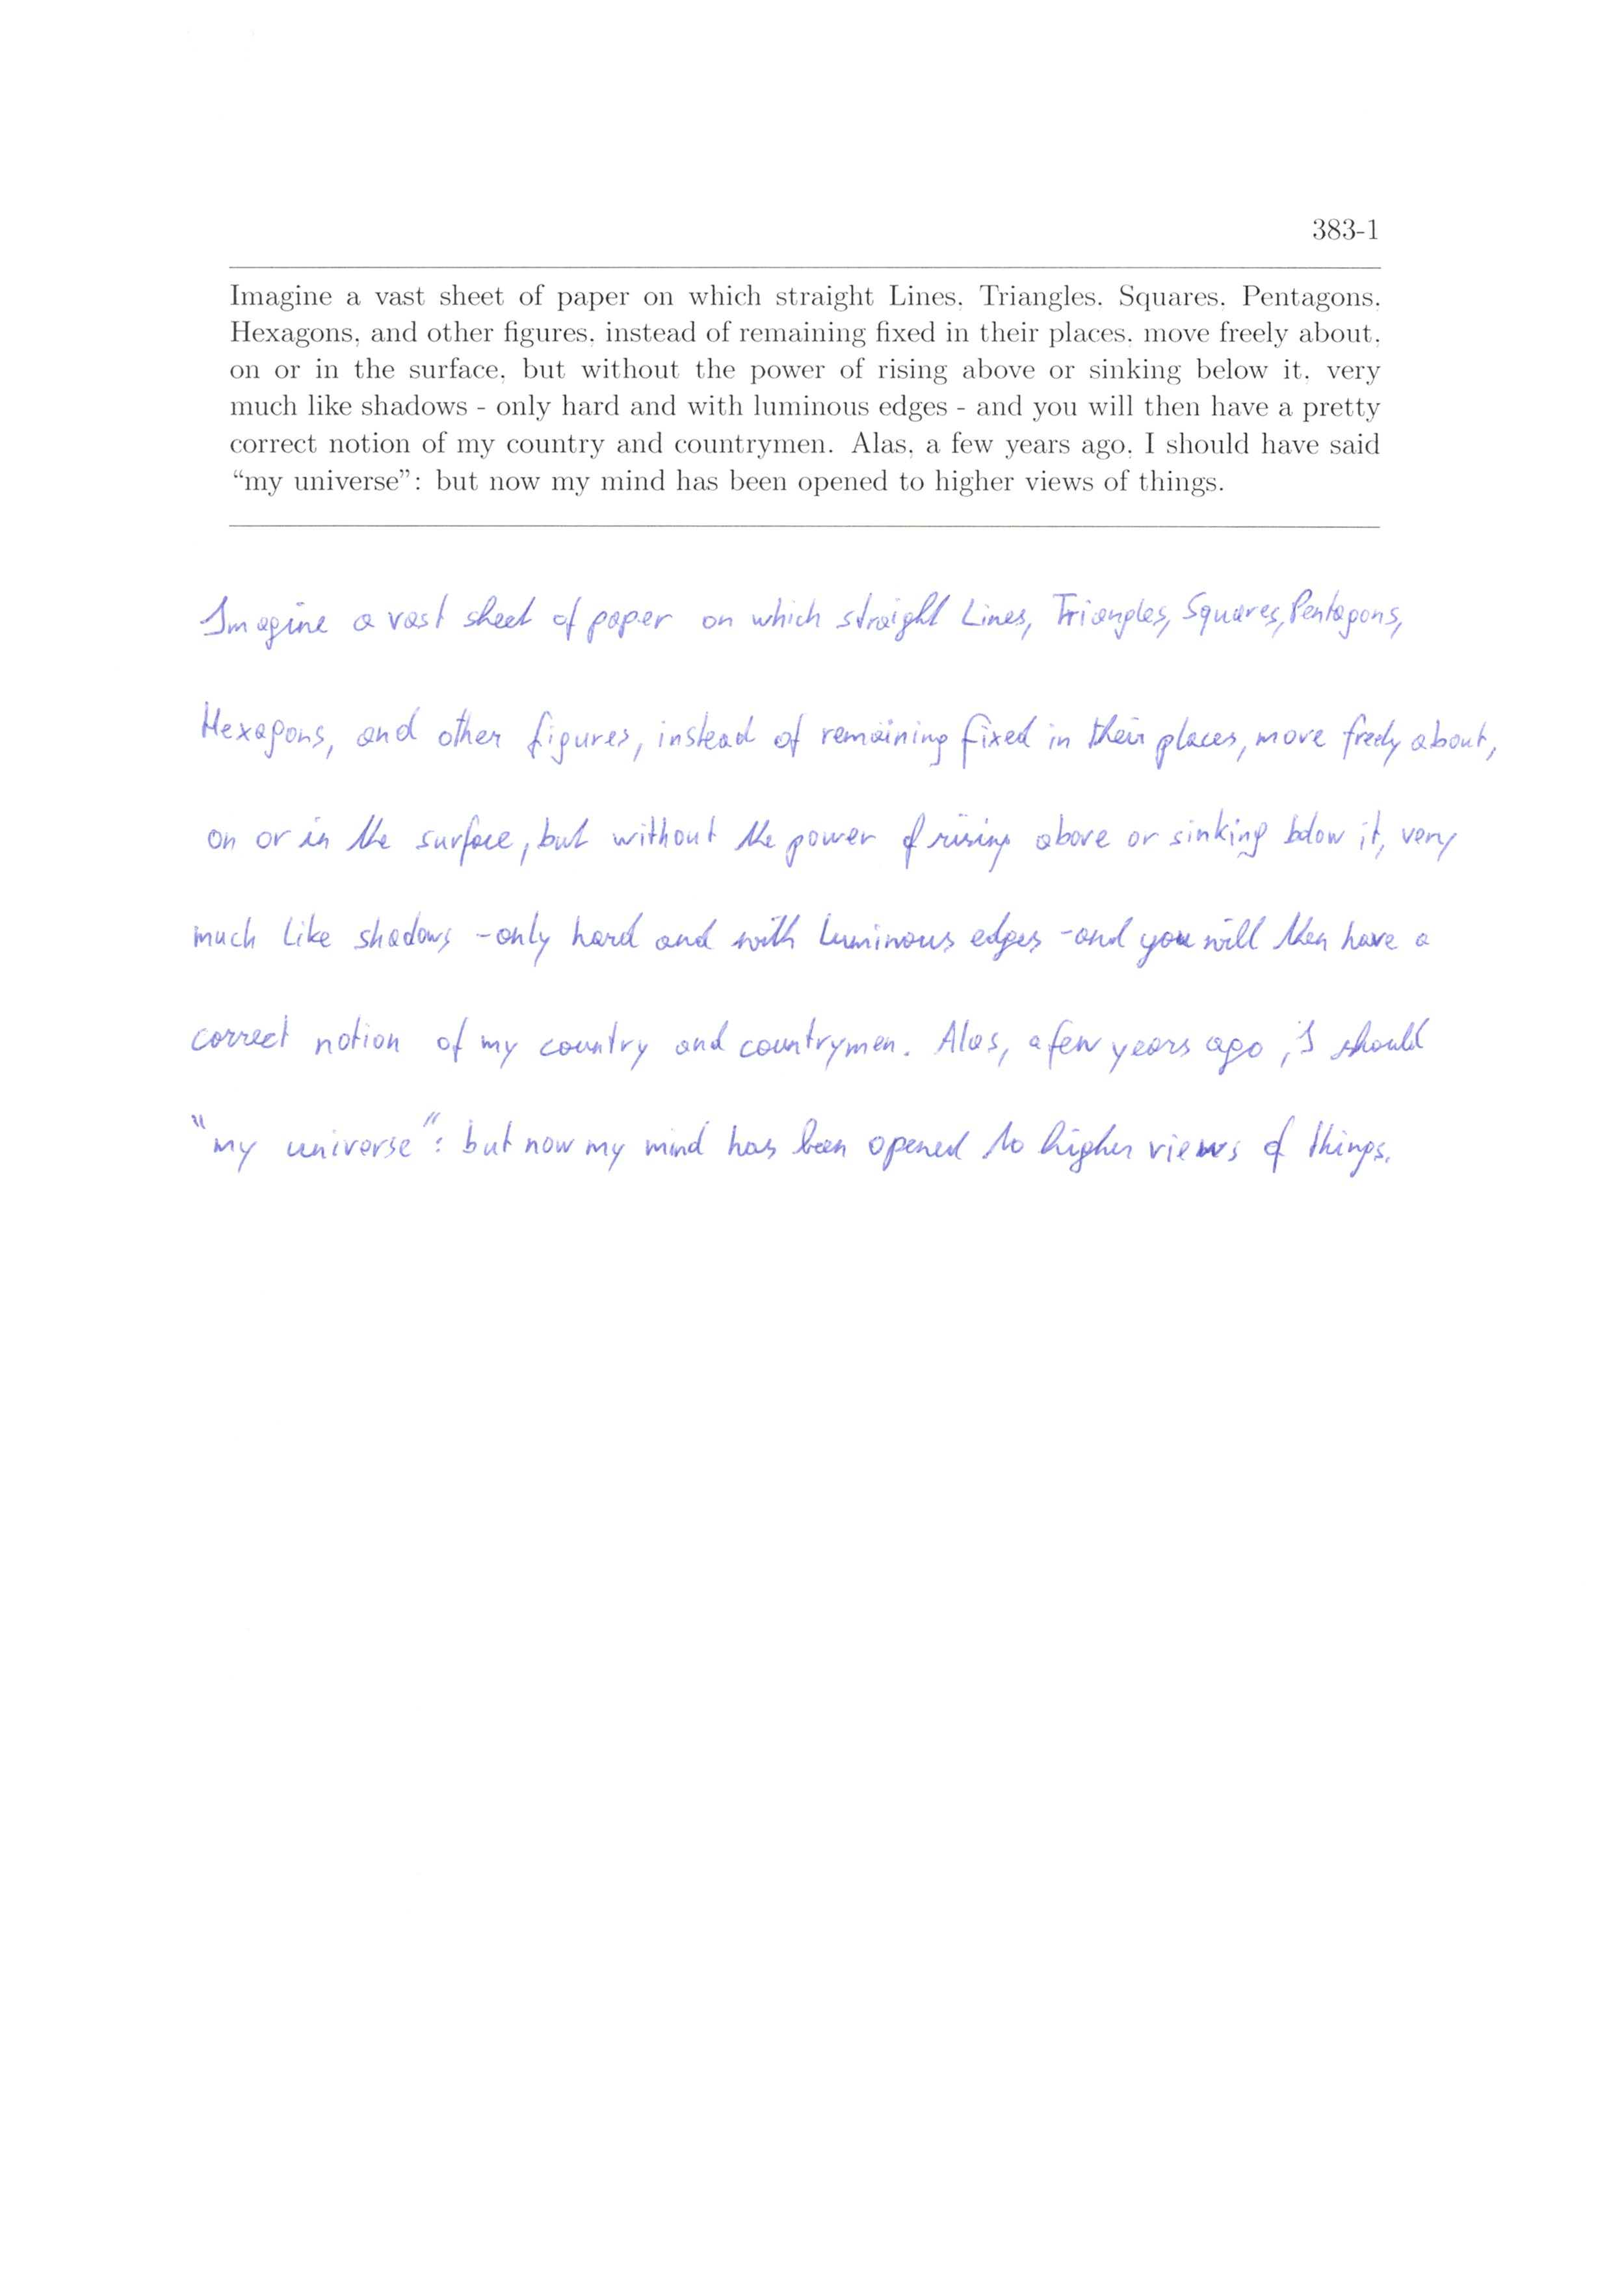 383-1
Imagine a vast sheet of paper on which straight Lines, Triangles, Squares, Pentagons,
Hexagons, and other figures, instead of remaining fixed in their places, move freely about,
on or in the surface, but without the power of rising above or sinking below it, very
much like shadows - only hard and with luminous edges - and you will then have a pretty
correct notion of my country and countrymen. Alas, a few years ago, I should have said
“my universe”: but now my mind has been opened to higher views of things.
Imagine a vast sheet of paper on which straight Lines, Triangles, Squares, Pentagons,
Hexagons, and other figures, instead of remaining fixed in their places, move freely about,
on or in the surface, but without the power of rising above or sinking below it, very
much like shadows - only hard and with luminous edges - and you will then have a
correct notion of my country and countrymen. Alas, a few years ago, I should
"my universe": but now my mind has been opened to higher views of things.